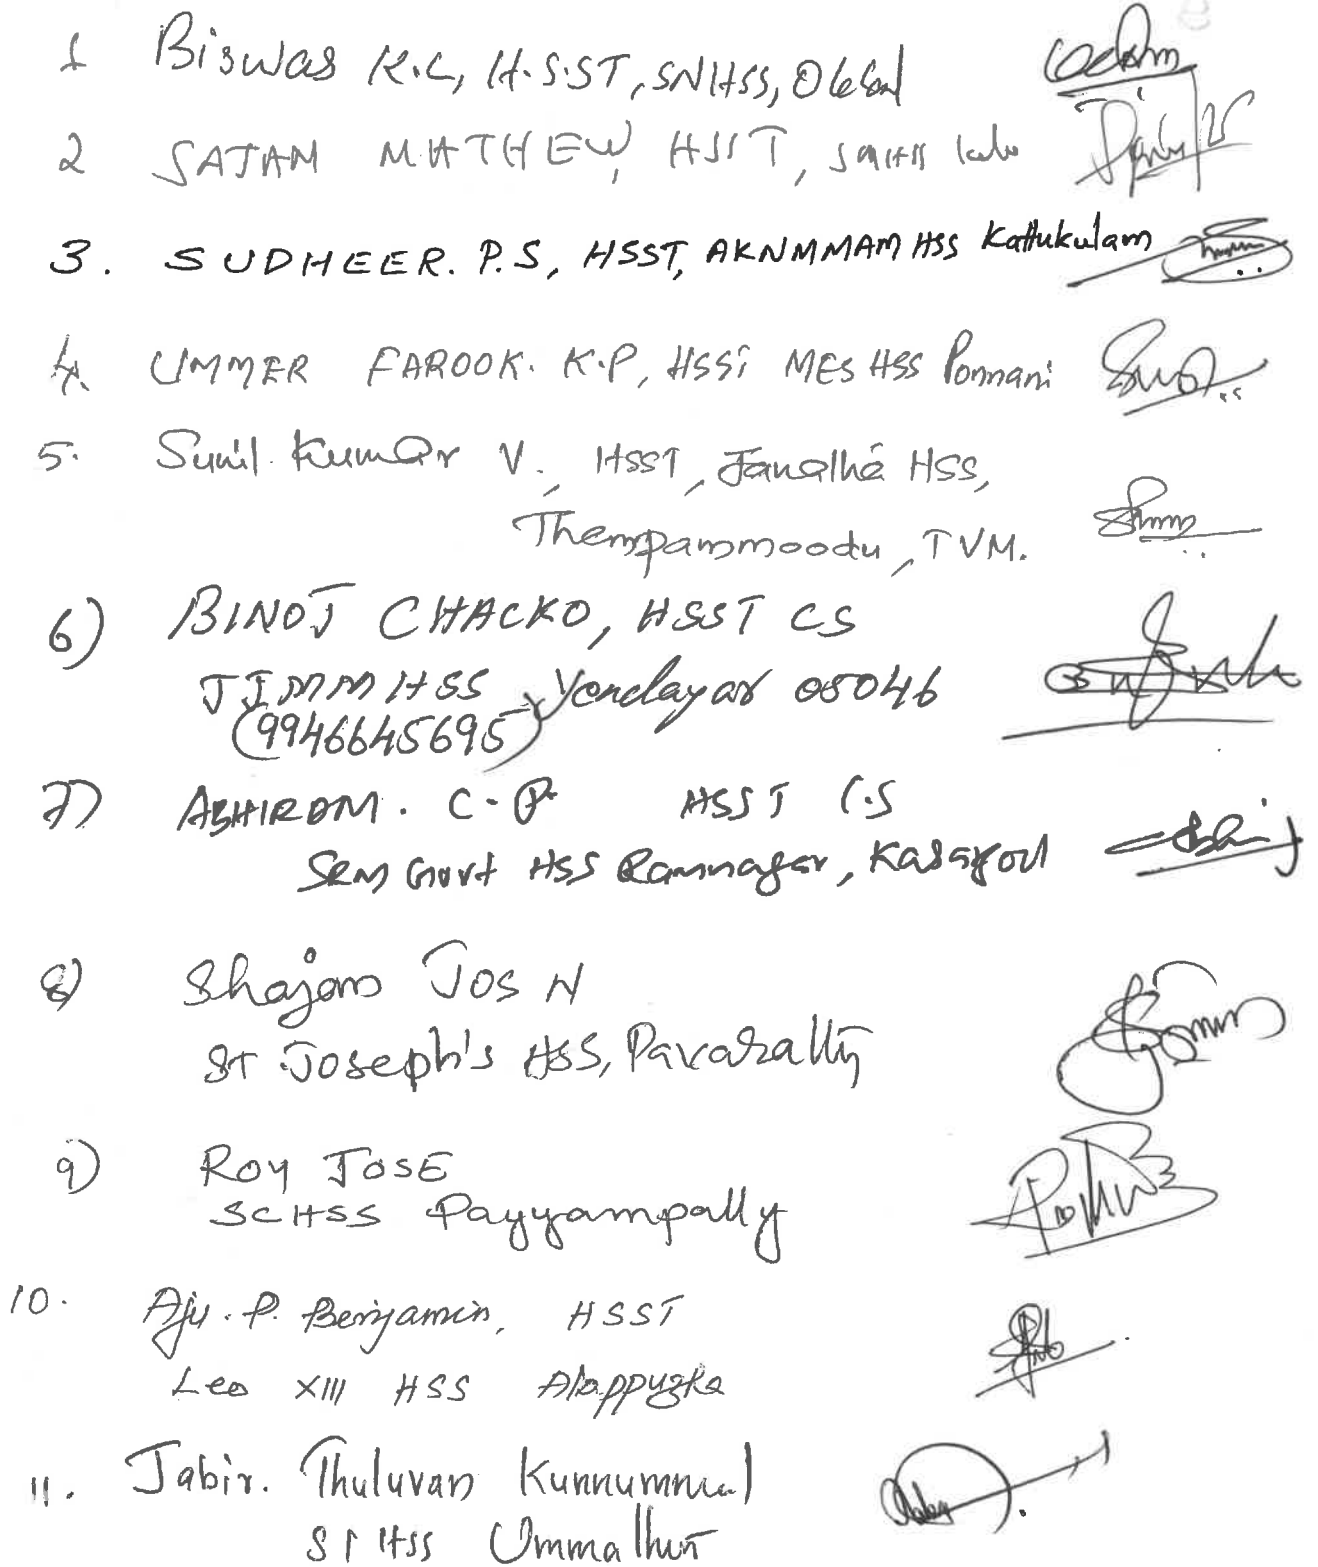 1 Biswas K.C, H.S.ST, SNHSS, Okkal
2 SAJAN MATHEW, HSST,
3. SUDHEER. P.S, HSST, AKNMMAM HSS Kattukulam
4. UMMER FAROOK. K.P, HSST MES HSS Ponnani
5. Sunil Kumar V., HSST, Janatha HSS,
Thempammoodu, TVM.
6) BINOJ CHACKO, HSST CS
JJMMHSS, Yendayar 05046
(9946645695)
7) ABHIRAM. C.P. HSST C.S
SRM Govt HSS Ramnagar, Kasargod
8) Shajan Jos N
ST Joseph's HSS, Pavaratty
9) ROY JOSE
SCHSS Payyampally
10. Aju. P. Benjamin, HSST
Leo XIII HSS Alappuzha
11. Jabir. Thuluvan Kunnummal
SI HSS Ummathur